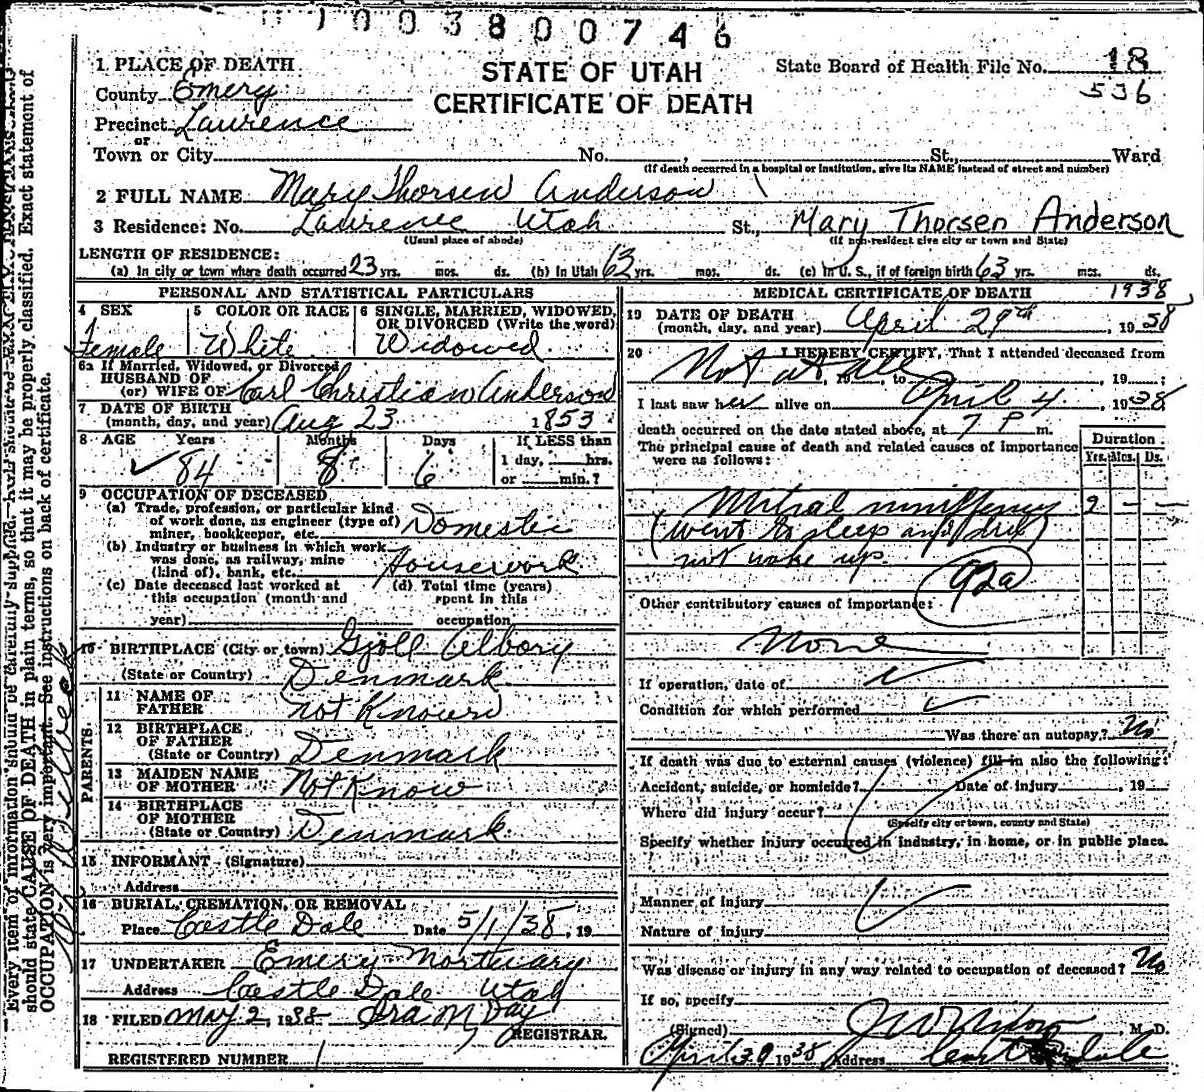 1003800746
1 PLACE OF DEATH
STATE OF UTAH
CERTIFICATE OF DEATH
State Board of Health File No. 18
536
County Emery
Precinct Lawrence
or
Town or City No. , St., Ward
(If death occurred in a hospital or institution, give its NAME instead of street and number)
2 FULL NAME Mary Thorsen Anderson
3 Residence: No. Lawrence Utah St., Mary Thorsen Anderson
(Usual place of abode) (If non-resident give city or town and State)
LENGTH OF RESIDENCE:
(a) In city or town where death occurred 23 yrs. mos. ds. (b) In Utah 63 yrs. mos. ds. (c) In U. S., if of foreign birth 63 yrs. mos. ds.
PERSONAL AND STATISTICAL PARTICULARS
4 SEX
Female
5 COLOR OR RACE
White
6 SINGLE, MARRIED, WIDOWED, OR DIVORCED (Write the word)
Widowed
6a If Married, Widowed, or Divorced
HUSBAND OF
(or) WIFE OF Carl Christian Anderson
7 DATE OF BIRTH
(month, day, and year) Aug 23 1853
8 AGE Years Months Days If LESS than
84 8 6 1 day, hrs.
or min.?
9 OCCUPATION OF DECEASED
(a) Trade, profession, or particular kind
of work done, as engineer (type of)
miner, bookkeeper, etc. Domestic
(b) Industry or business in which work
was done, as railway, mine
(kind of), bank, etc. Housework
(c) Date deceased last worked at
this occupation (month and
year)
(d) Total time (years)
spent in this
occupation
10 BIRTHPLACE (City or town) Gjoll Albory
(State or Country) Denmark
PARENTS
11 NAME OF
FATHER not Known
12 BIRTHPLACE
OF FATHER
(State or Country) Denmark
13 MAIDEN NAME
OF MOTHER Not Know
14 BIRTHPLACE
OF MOTHER
(State or Country) Denmark
15 INFORMANT (Signature)
Address
16 BURIAL, CREMATION, OR REMOVAL
Place Castle Dale Date 5/1/38, 19
17 UNDERTAKER Emery Mortuary
Address Castle Dale Utah
18 FILED May 2, 1938 Ira M Day
REGISTRAR.
REGISTERED NUMBER 1
MEDICAL CERTIFICATE OF DEATH 1938
19 DATE OF DEATH
(month, day, and year) April 29th, 1938
20 I HEREBY CERTIFY, That I attended deceased from
Not at all, 19 , to , 19 ;
I last saw her alive on April 4, 1938
death occurred on the date stated above, at 7 P m.
The principal cause of death and related causes of importance
were as follows:
Duration
Yrs. Mos. Ds.
Mitral 2 - -
(went to sleep and did
not wake up.
92a
Other contributory causes of importance:
None
If operation, date of
Condition for which performed
Was there an autopsy? No
If death was due to external causes (violence) fill in also the following:
Accident, suicide, or homicide? Date of injury , 19
Where did injury occur?
(Specify city or town, county and State)
Specify whether injury occurred in industry, in home, or in public place.
Manner of injury
Nature of injury
Was disease or injury in any way related to occupation of deceased? No
If so, specify
(Signed) M. D.
April 30 1938 Address Castle Dale
Every item of information should be carefully supplied.
should state CAUSE OF DEATH in plain terms, so that it may be properly classified. Exact statement of
OCCUPATION is very important. See instructions on back of certificate.